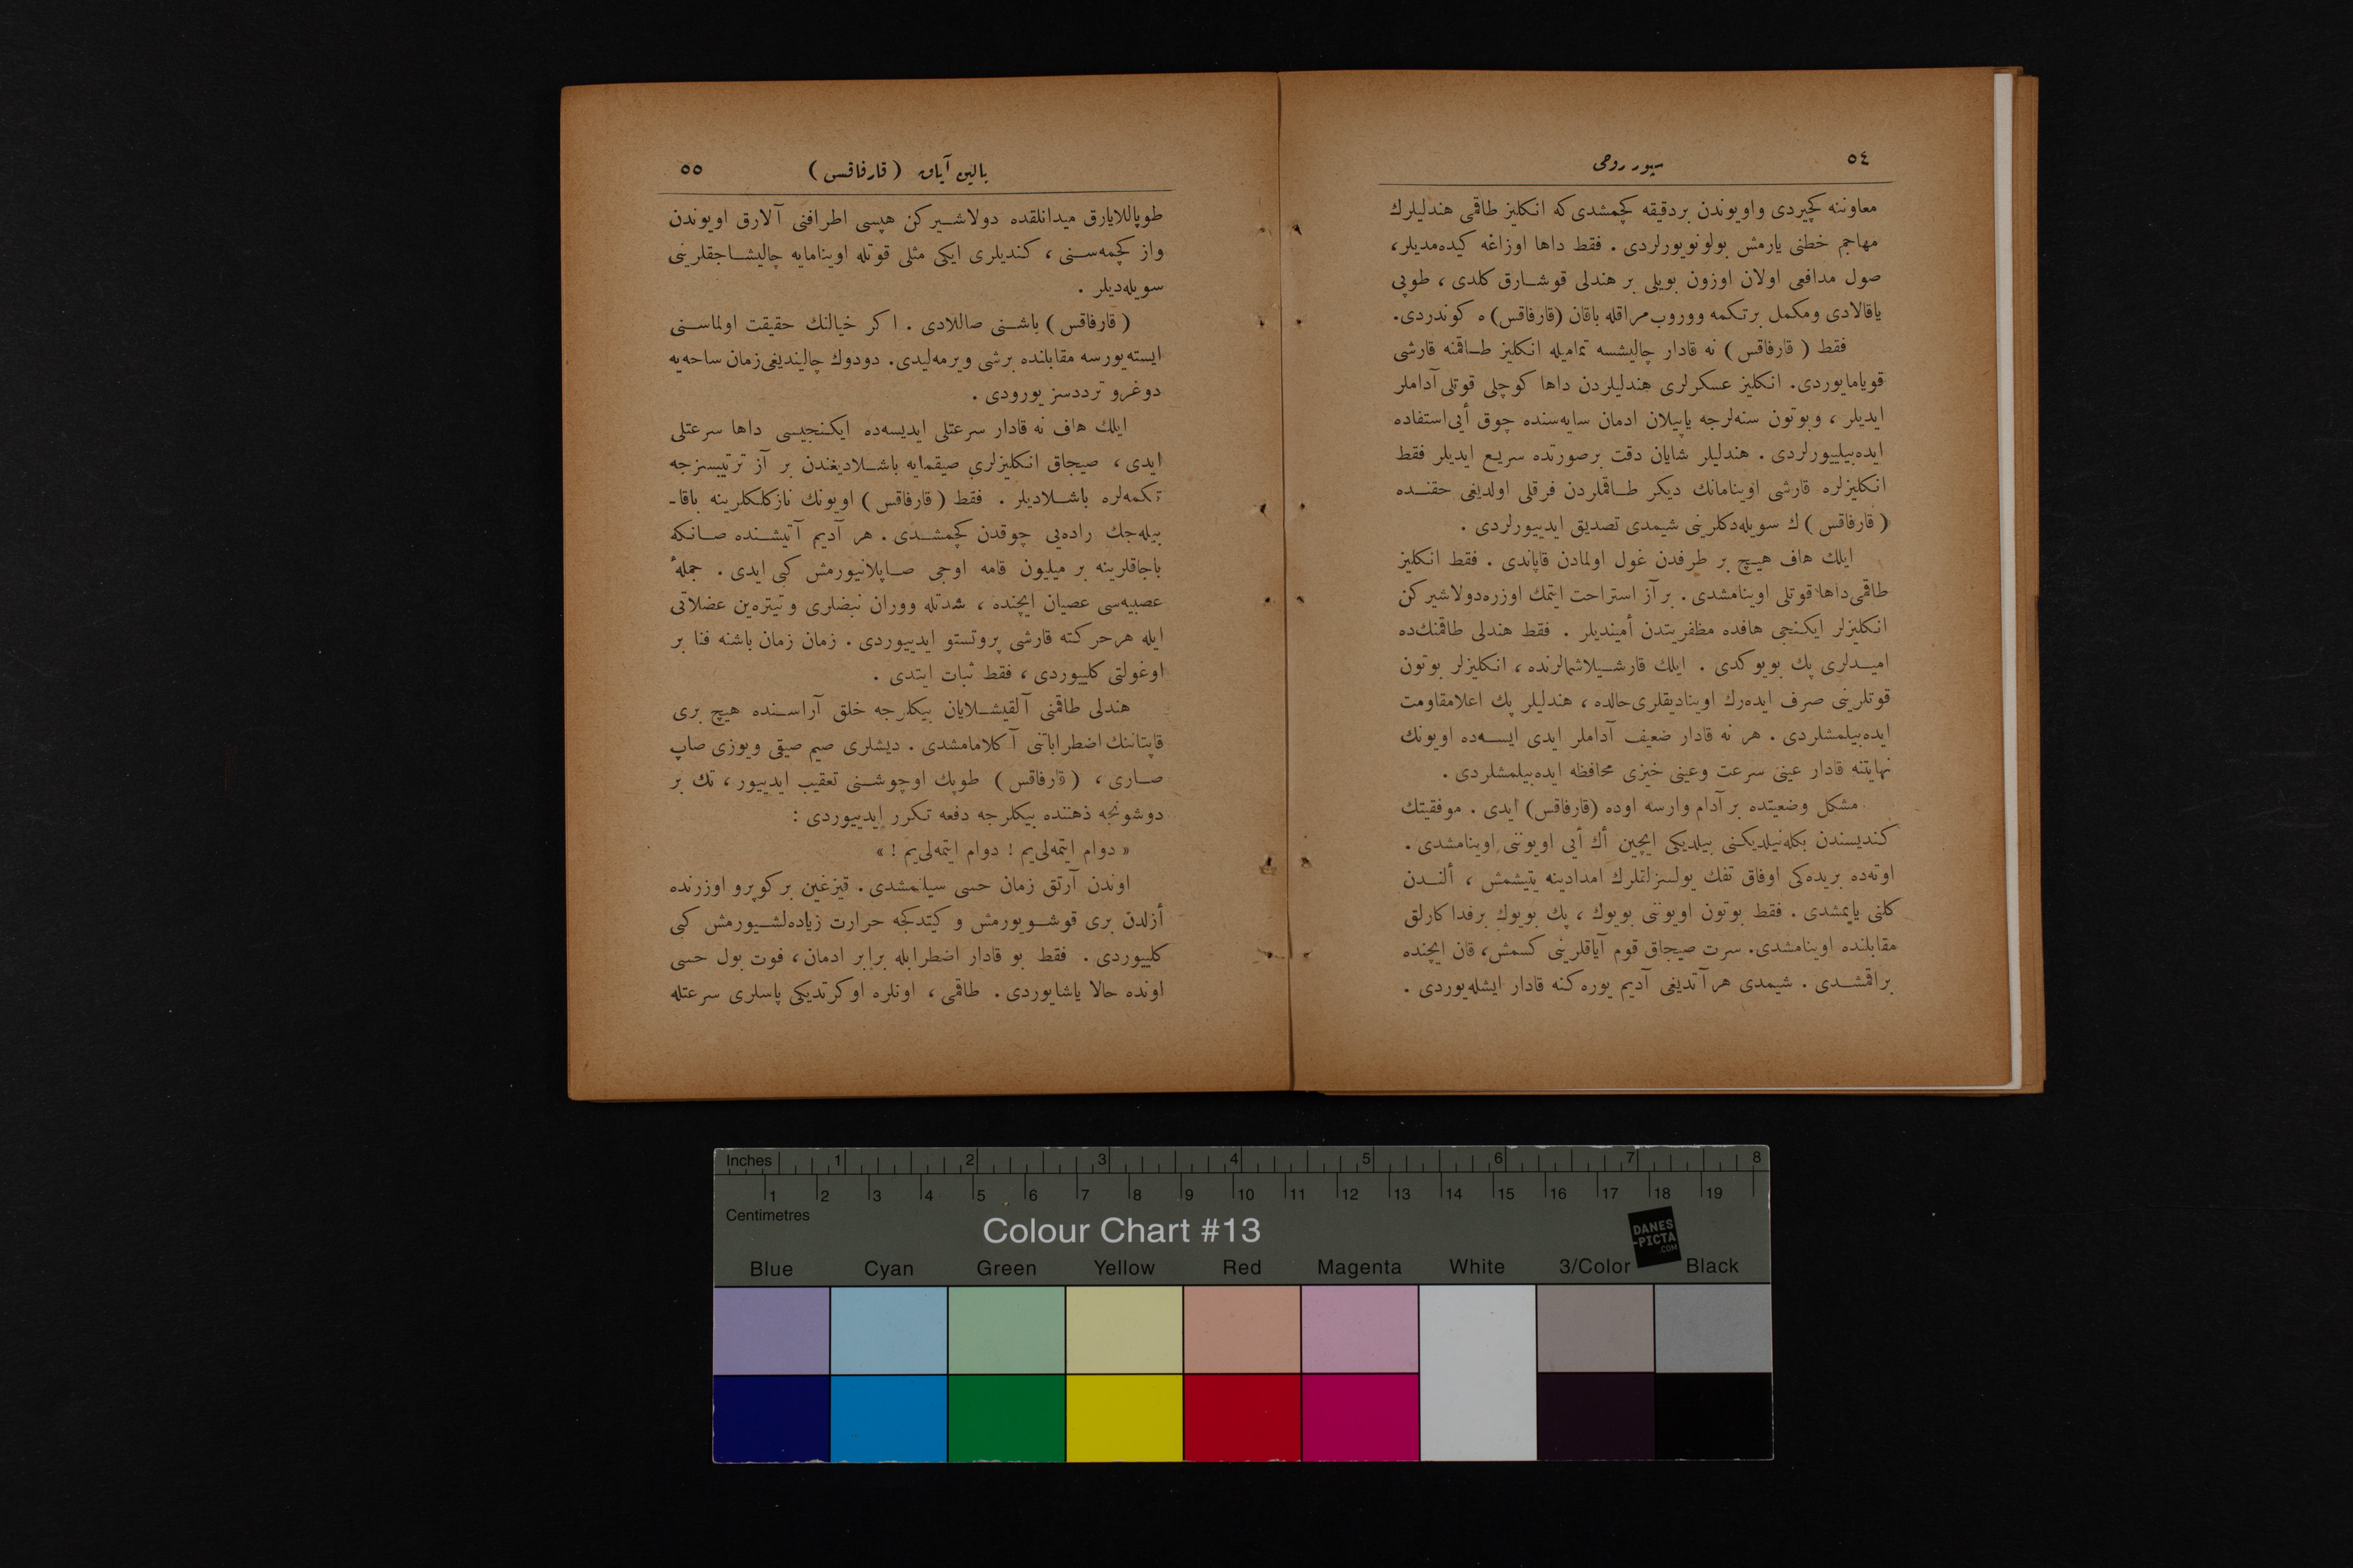 ٥٤
سپور روحی
معاوننه كچیردی واویوندن بردقیقه كچمشدی كه انكلیز طاقمی هندلیلرك
مهاجم خطنی یارمش بولونویورلردی . فقط داها اوزاغه كیده‌مدیلر،
صول مدافعی اولان اوزون بویلی بر هندلی قوشارق كلدی ، طوپی
یاقالادی ومكمل برتكمه ووروب مراقله باقان (قارفاقس) ه كوندردی.
فقط ( قارفاقس ) نه قادار چالیشسه تمامیله انكلیز طاقمنه قارشی
قویامایوردی. انكلیز عسكرلری هندلیلردن داها كوچلی قوتلی آداملر
ایدیلر ، وبوتون سنه‌لرجه یاپیلان ادمان سایه‌سنده چوق أیی استفاده
ایده‌بیلییورلردی . هندلیلر شایان دقت برصورتده سریع ایدیلر فقط
انكلیزلره قارشی اوینامانك دیكر طاقملردن فرقلی اولدیغی حقنده
( قارفاقس ) ك سویله‌دكلرینی شیمدی تصدیق ایدییورلردی .
ایلك هاف هیچ بر طرفدن غول اولمادن قاپاندی . فقط انكلیز
طاقمی داها قوتلی اوینامشدی . برآز استراحت ایتمك اوزره دولاشیركن
انكلیزلر ایكنجی هافده مظفریتدن أمیندیلر . فقط هندلی طاقمنك ده
امیدلری پك بویوكدی . ایلك قارشیلاشمالرنده ، انكلیزلر بوتون
قوتلرینی صرف ایده‌رك اوینادیقلری حالده ، هندلیلر پك اعلا مقاومت
ایده‌بیلمشلردی . هر نه قادار ضعیف آداملر ایدی ایسه‌ده اویونك
نهایتنه قادار عینی سرعت وعینی خیزی محافظه ایده‌بیلمشلردی .
مشكل وضعیتده بر آدام وارسه اوده (قارفاقس) ایدی . موفقیتك
كندیسندن بكله‌نیلدیكنی بیلدیكی ایچین أك أیی اویوننی اوینامشدی .
اوته‌ده بریده‌كی اوفاق تفك یولسزلقلرك امدادینه یتیشمش ، ألندن
كلنی یاپمشدی . فقط بوتون اویوننی بویوك ، پك بویوك برفداكارلق
مقابلنده اوینامشدی. سرت صیجاق قوم آیاقلرینی كسمش، قان ایچنده
براقمشدی . شیمدی هرآتدیغی آدیم یوره‌كنه قادار ایشله‌یوردی .
یالین آیاق ( قارفاقس )
٥٥
طوپاللایارق میدانلقده دولاشیركن هپسی اطرافنی آلارق اویوندن
واز كچمه‌سنی ، كندیلری ایكی مثلی قوتله اوینامایه چالیشاجقلرینی
سویله‌دیلر .
( قارفاقس ) باشنی صاللادی . اكر خیالنك حقیقت اولماسنی
ایسته‌یورسه مقابلنده برشی ویرمه‌لیدی. دودوك چالیندیغی زمان ساحه‌یه
دوغرو ترددسز یورودی .
ایلك هاف نه قادار سرعتلی ایدیسه‌ده ایكنجیسی داها سرعتلی
ایدی ، صیجاق انكلیزلری صیقمایه باشلادیغندن بر آز ترتیبسزجه
تكمه‌لره باشلادیلر . فقط ( قارفاقس ) اویونك نازكلكلرینه باقا-
بیله‌جك راده‌یی چوقدن كچمشدی . هر آدیم آتیشنده صانكه
باجاقلرینه بر میلیون قامه اوجی صاپلانیورمش كبی ایدی . جملهٔ
عصبیه‌سی عصیان ایچنده ، شدتله ووران نبضلری وتیتره‌ین عضلاتی
ایله هرحركته قارشی پروتستو ایدییوردی . زمان زمان باشنه فنا بر
اوغولتی كلییوردی ، فقط ثبات ایتدی .
هندلی طاقمنی آلقیشلایان بیكلرجه خلق آراسنده هیچ بری
قاپتاننك اضطراباتنی آكلامامشدی . دیشلری صیم صیقی ویوزی صاپ
صاری ، ( قارفاقس ) طوپك اوچوشنی تعقیب ایدییور ، تك بر
دوشونجه ذهننده بیكلرجه دفعه تكرر ایدییوردی :
« دوام ایتمه‌لی‌یم ! دوام ایتمه‌لی‌یم ! »
اوندن آرتق زمان حسی سیلنمشدی . قیزغین بركوپرو اوزرنده
أزلدن بری قوشویورمش و كیتدكجه حرارت زیاده‌لشیورمش كبی
كلییوردی . فقط بو قادار اضطرابله برابر ادمان ، فوت بول حسی
اونده حالا یاشایوردی . طاقمی ، اونلره اوكرتدیكی پاسلری سرعتله
Inches 1 2 3 4 5 6 7 8
1 2 3 4 5 6 7 8 9 10 11 12 13 14 15 16 17 18 19
Centimetres
Colour Chart #13
DANES
-PICTA
.COM
Blue Cyan Green Yellow Red Magenta White 3/Color Black